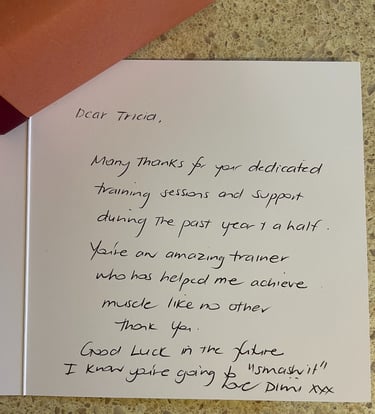 Dear Tricia,
Many Thanks for your dedicated
training sessions and support
during the past year & a half.
You're an amazing trainer
who has helped me achieve
muscle like no other
thank you.
Good Luck in the future
I know you're going to "smash it"
love Dimi xxx